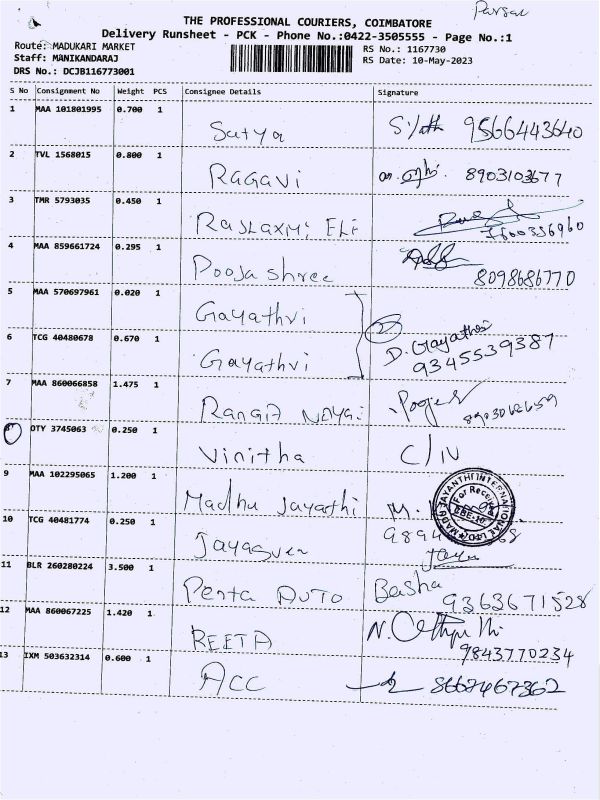 Parsal
THE PROFESSIONAL COURIERS, COIMBATORE
Delivery Runsheet - PCK - Phone No.:0422-3505555 - Page No.:1
Route: MADUKARI MARKET
RS No.: 1167730
Staff: MANIKANDARAJ
RS Date: 10-May-2023
DRS No.: DCJB116773001
S No Consignment No Weight PCS Consignee Details Signature
1 MAA 101801995 0.700 1
Satya 9566443640
2 TVL 1568015 0.800 1
RAGAVI 8903103677
3 TMR 5793035 0.450 1
RAJLAXMI ELE 7600356960
4 MAA 859661724 0.295 1
Pooja shree 8098686770
5 MAA 570697961 0.020 1
Gayathri
6 TCG 40480678 0.670 1
Gayathri D. Gayathri
9345539387
7 MAA 860066858 1.475 1
8903062659
OTY 3745063 0.250 1
Vinitha C/IV
9 MAA 102295065 1.200 1
Madhu Jayathi M.
MADHU JAYANTHI INTERNATIONAL
For Receive
10 TCG 40481774 0.250 1
Jaya
11 BLR 260280224 3.500 1
Penta AUTO Basha
9363671528
12 MAA 860067225 1.420 1
REETA N.
9843770234
13 IXM 503632314 0.600 1
ACC 8667467362